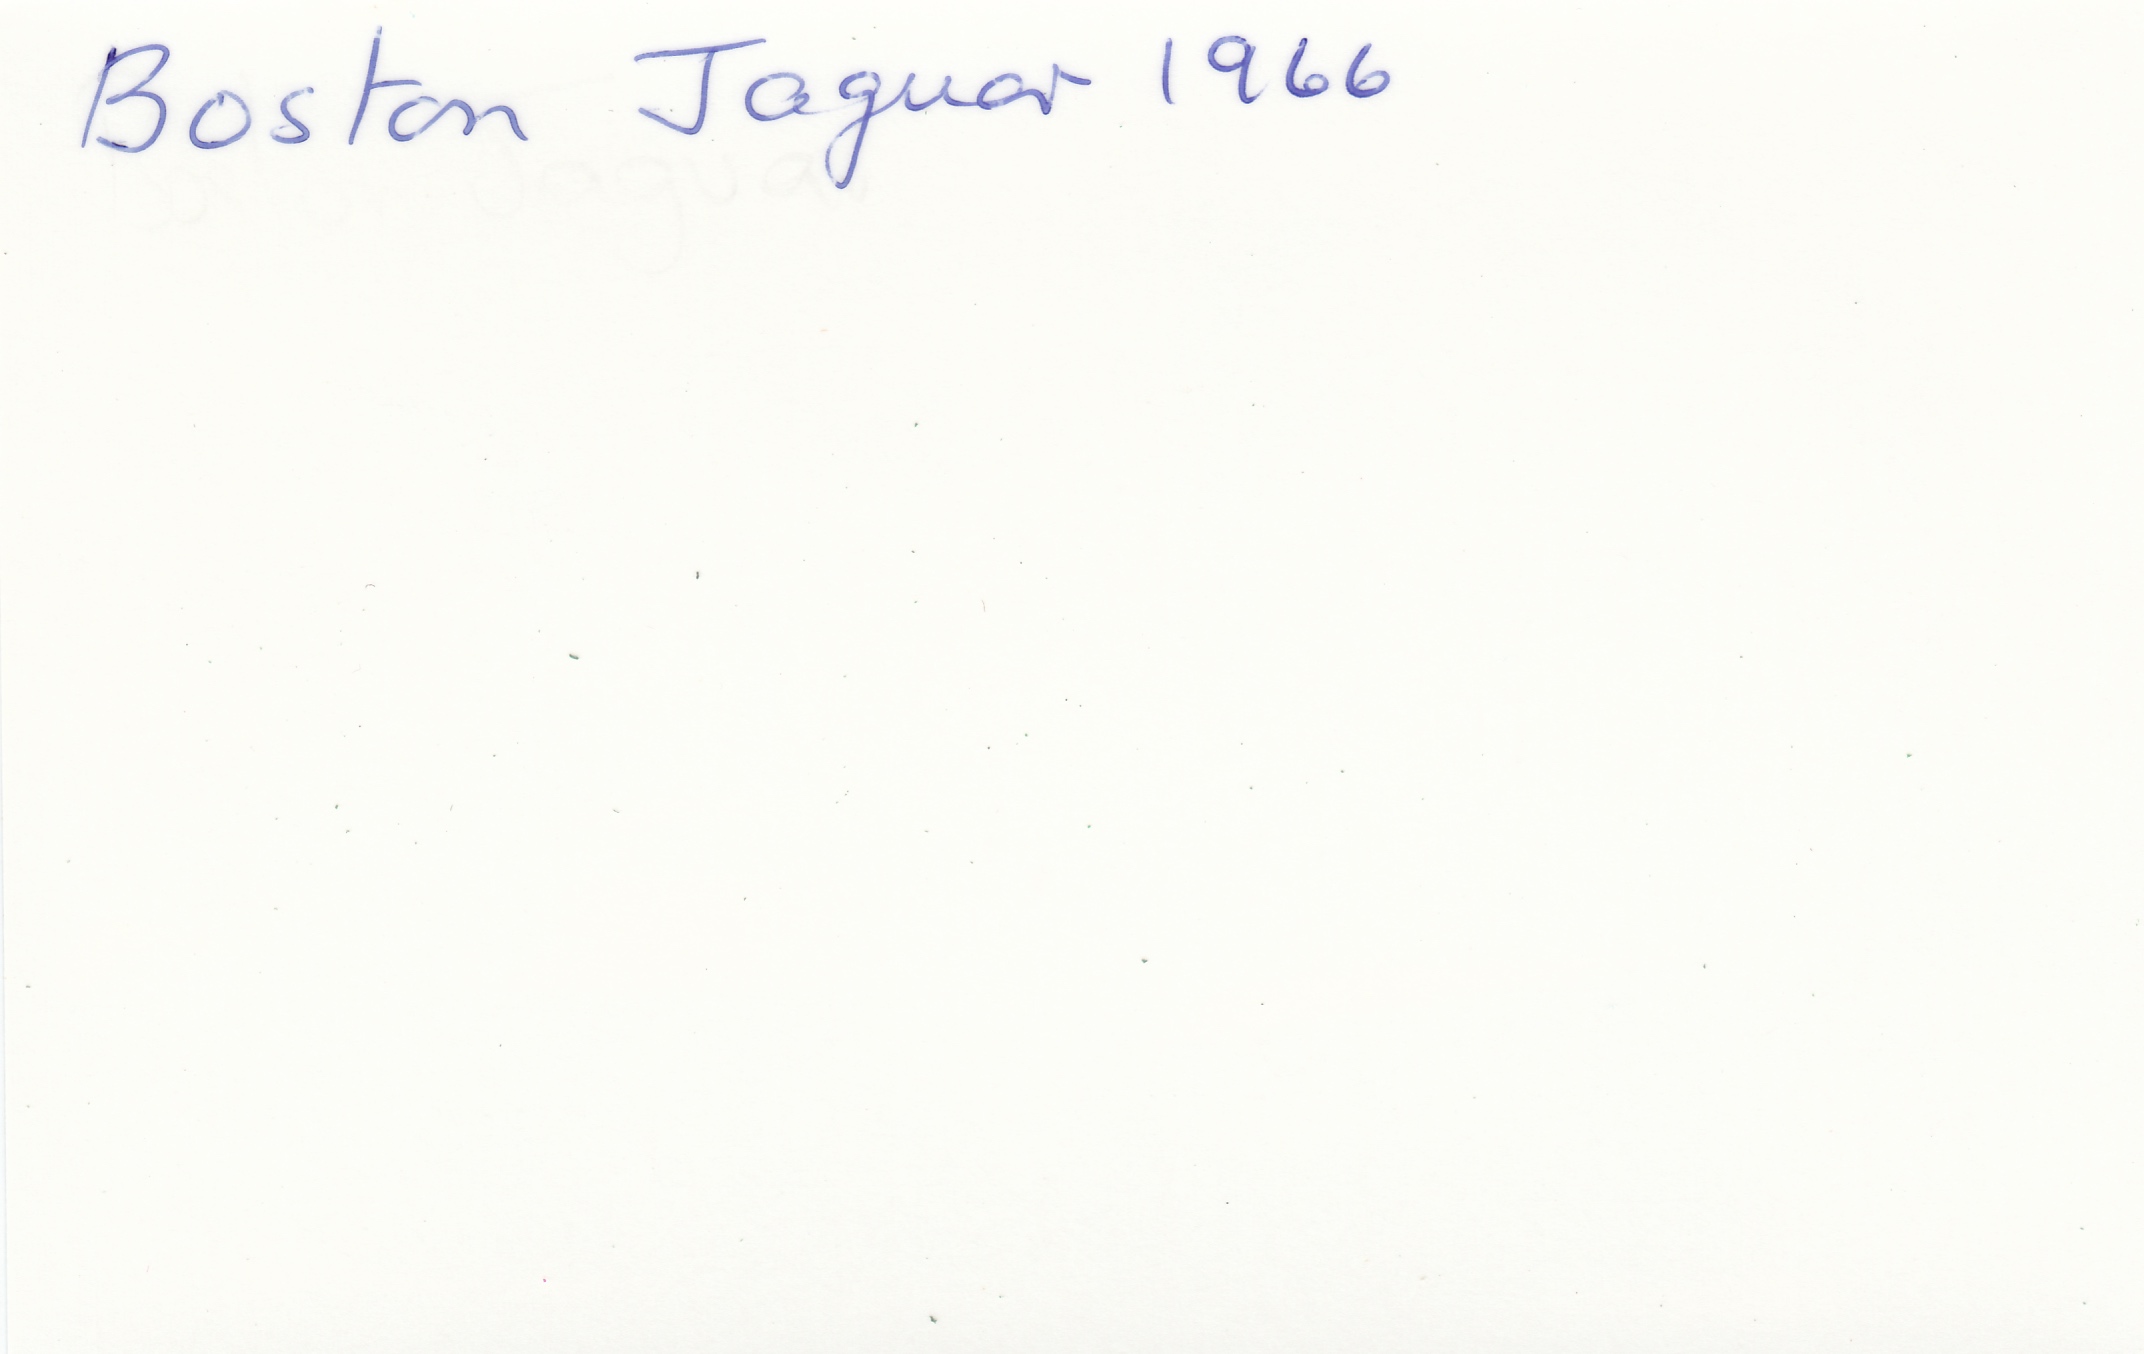 Boston Jaguar 1966